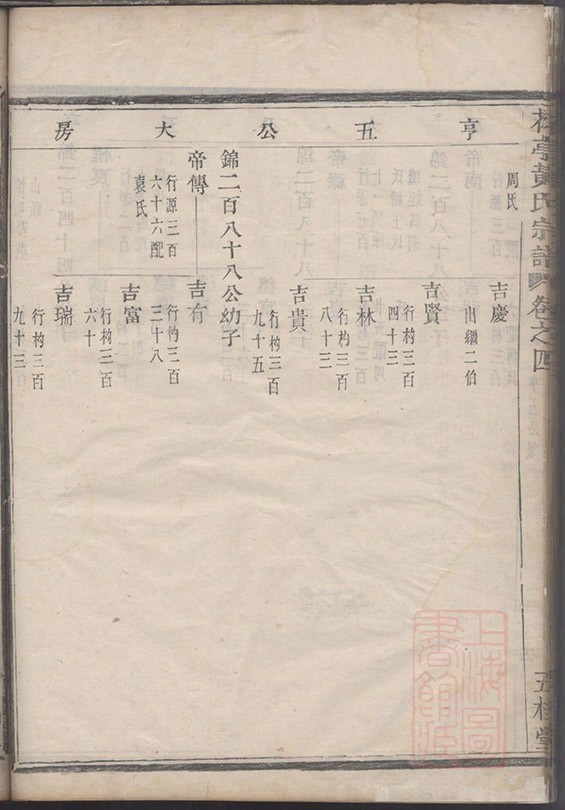 亭黃氏宗譜 卷之四 五桂堂
亨五公大房
周氏
吉慶
出繼二伯
吉賢
行杓三百
四十三
吉林
行杓三百
八十三
吉貴
行杓三百
九十五
錦二百八十八公幼子
帝傳
行源三百
六十六配
袁氏
吉有
行杓三百
三十八
吉富
行杓三百
六十
吉瑞
行杓三百
九十三
上海圖
書館藏